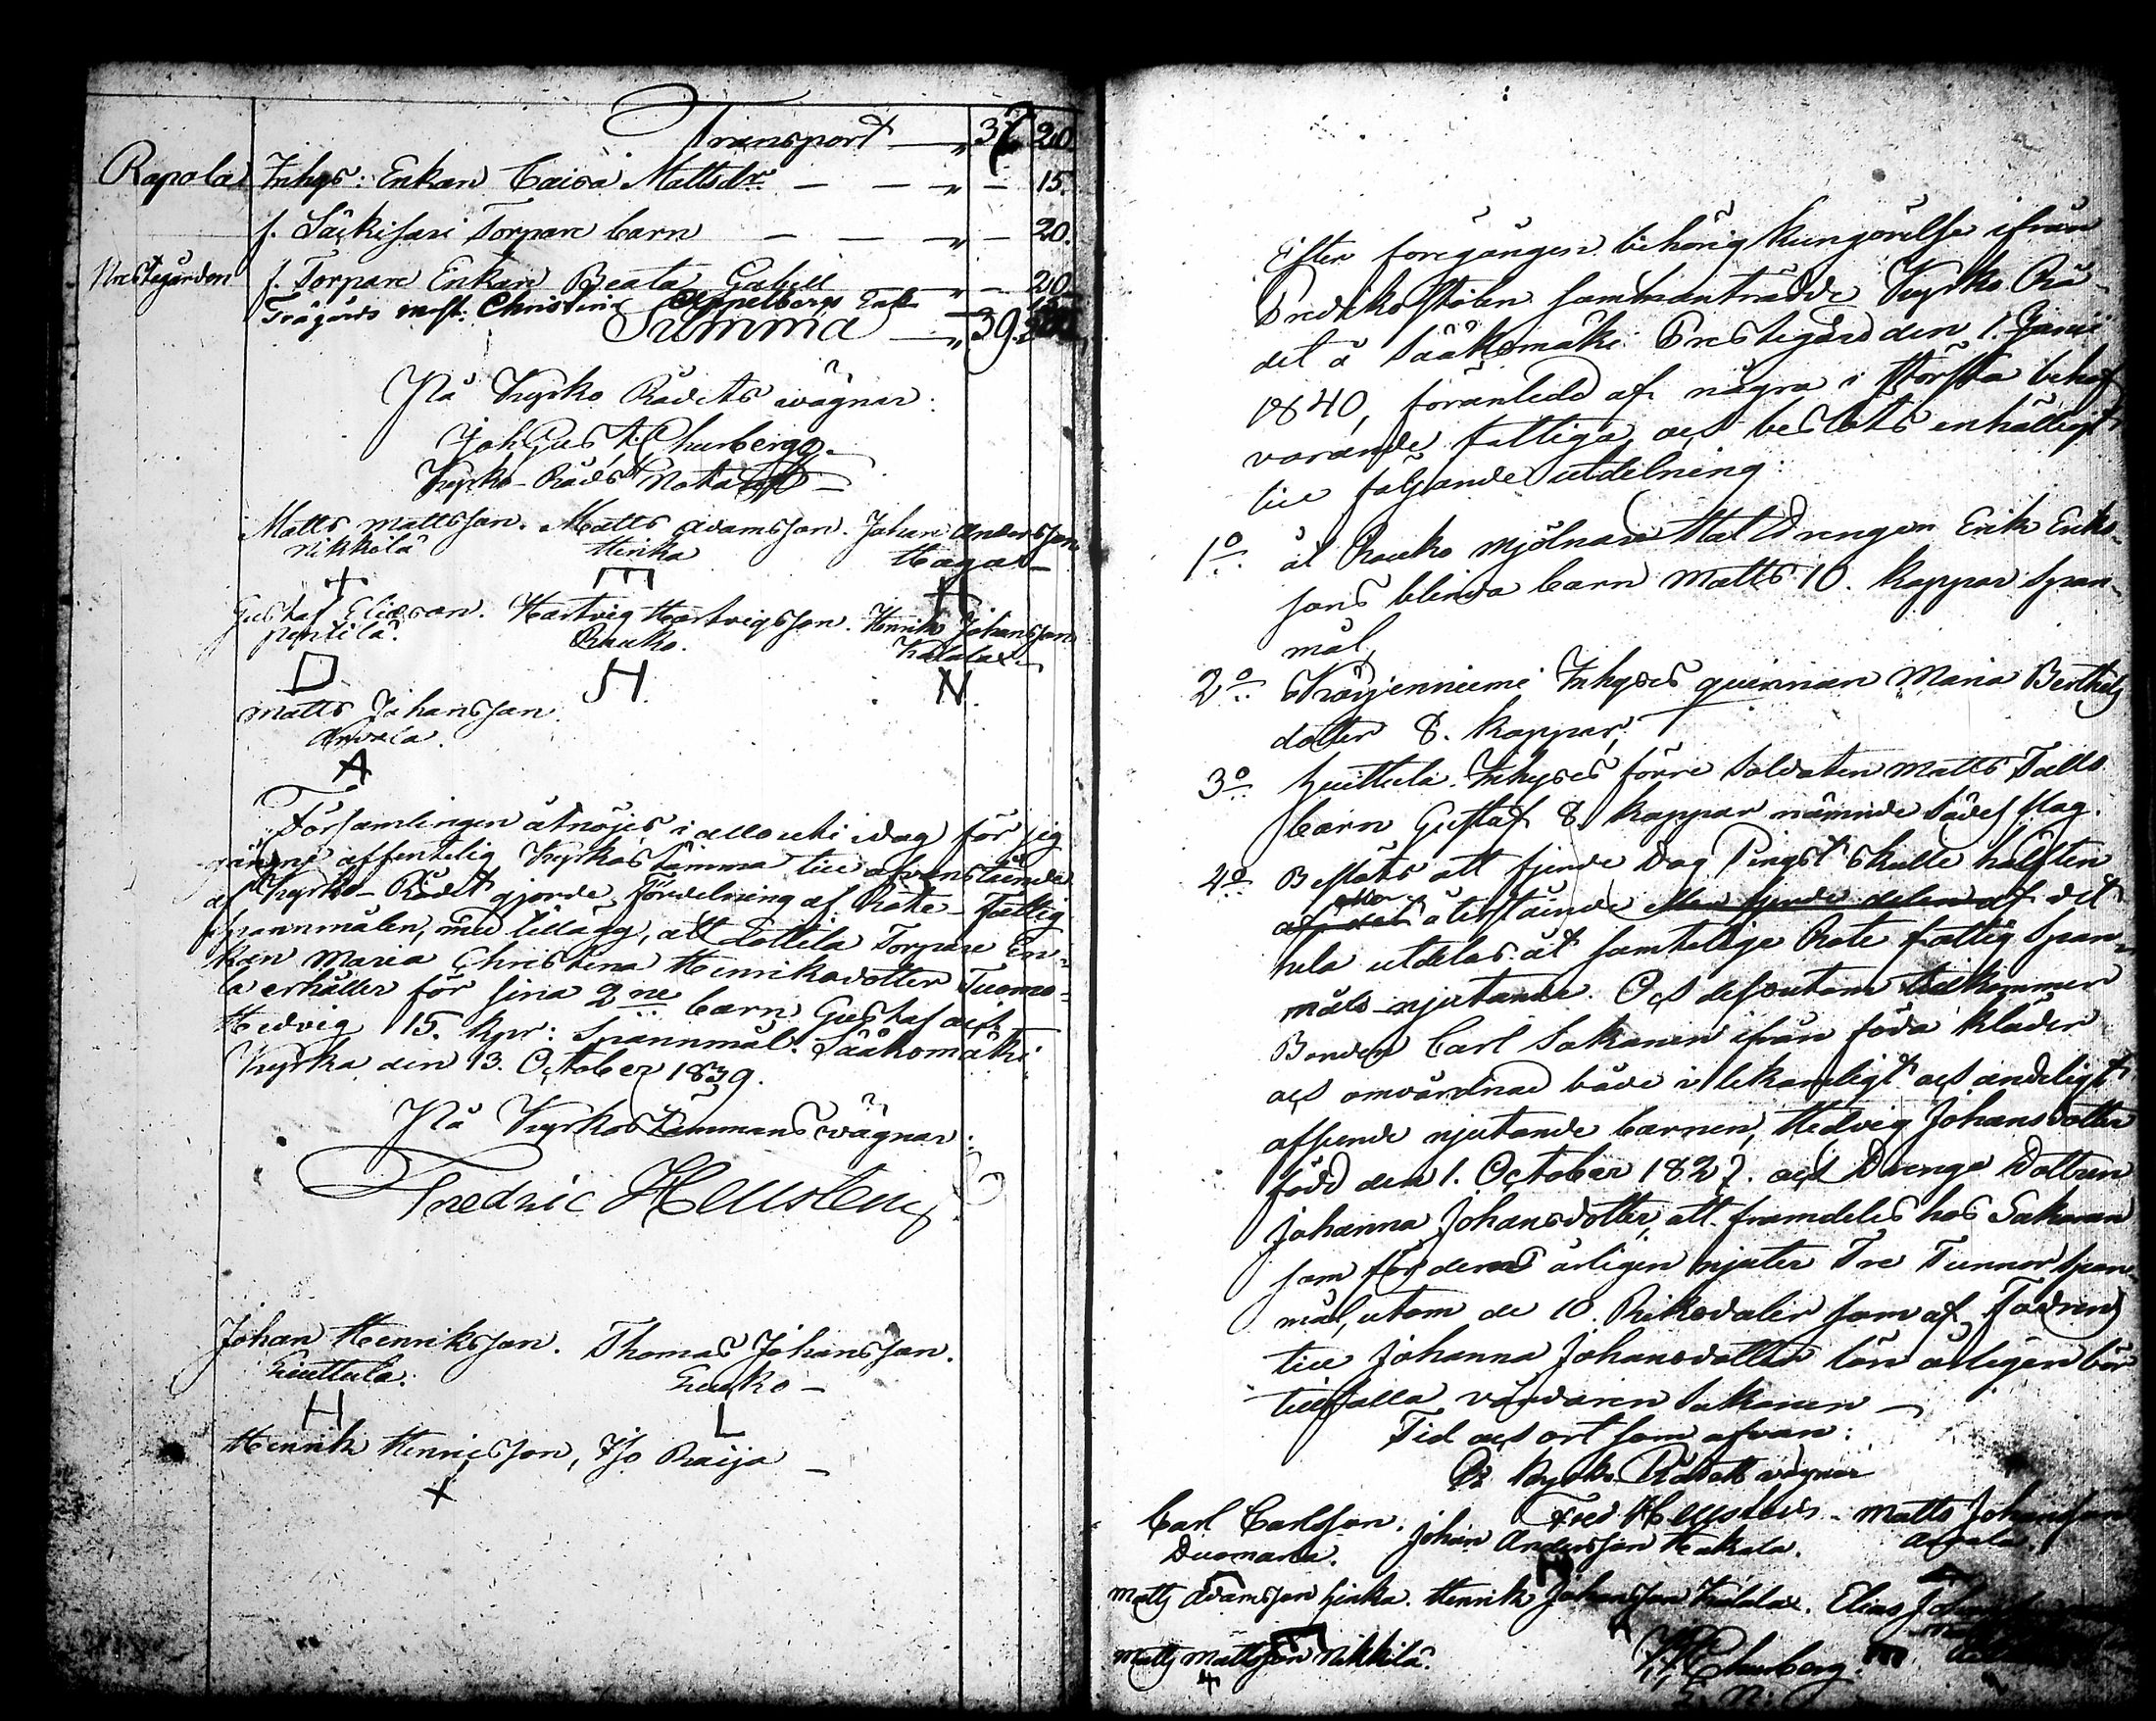 Transport — „ 37 20.
Rapola Inhys: Enkan Caisa Mattsdr — — „ — 15.
f. Säkisari Torpare barn — — „ — 20.
Prestegården f. Torpare Enkan Beata Gabell „ — 20
Trägårds mäst: Christina Appelberg Enk
Summa — „ 39.
På Kyrko Rådets wägnar:
Joh Gust. Churberg
Kyrko-Råds Notarie
Matts Mattsson. Matts Adamsson. Johan Andersson
Nikkilä Herika Hagas
Gustaf Eliasson. Hartvig Hartvigsson. Henrik Johansson
Penttilä. Rauko. Kalalax
H. N.
Matts Johansson
Arvela.
A
Församlingen åtnöjes i allo uti idag för sig
offentelig Kyrkostämma till ofvanstående
af Kyrko-Rådet gjorde fördelning af Rote-fattig
spannmålen, med tillägg, att Lottila Torpare En-
kan Maria Christina Henriksdotter Tuomo-
la erhåller för sina 2ne barn Gustaf och
Hedvig 15. kpr: Spannmål. Sääksmäki
Kyrka den 13. October 1839.
På Kyrkostämmans wägnar:
Fredric Hellsten
Johan Henriksson. Thomas Johansson.
Huittula. Huuko —
H L
Henrik Henricsson, Iso Raija —
X
Efter föregången behörig kungörelse ifrån
Predikostolen sammanträdde Kyrko Rå-
det å Sääksmäki Prestegård den 1. Junii
1840, föranledd af några i största behof
varande fattiga och beslöts enhälligt
till följande utdelning:
1o åt Rauko mjölnare Mat Drengen Erik Eriks-
sons blinda barn Matts 10. kappar span-
mål,
2o Inhyses qvinnan Maria Berthils
dotter 8. kappar,
3o Huittula Inhyses förre Soldaten Matts Talls
barn Gustaf 8. kappar nämnde Sädes slag.
4o Beslöts att fjerde Dag Pingst skulle hälften
återstående eller fjerde delen af det
hela utdelas åt samtelige Rote fattig Span-
måls njutande. Och dessutom tilkommer
Bonden Carl Sakanen ifrån föda kläder
och omvårdnad både i lekamligt och andeligt
afseende njutande barnen, Hedvig Johansdotter
född den 1. October 1827. och Drenge Dottren
Johanna Johansdotter, att framdeles hos Sakanen
som för deras årligen njuter Tre Tunnor span-
mål, utom de 10. Riksdaler som af Fadren
till Johanna Johansdotter lön årligen bör
tillfalla vårdaren Sakanen —
Tid och ort som ofvan:
På Kyrko Rådets vägnar
Fred Hellsten. Matts Johansson
Carl Carlsson. Johan Andersson Hakala. Arvela.
Duomana.
Matts Adamsson Herka. Henrik Johansson Kalalax. Elias
Matts Mattsson Nikkilä. Churberg.